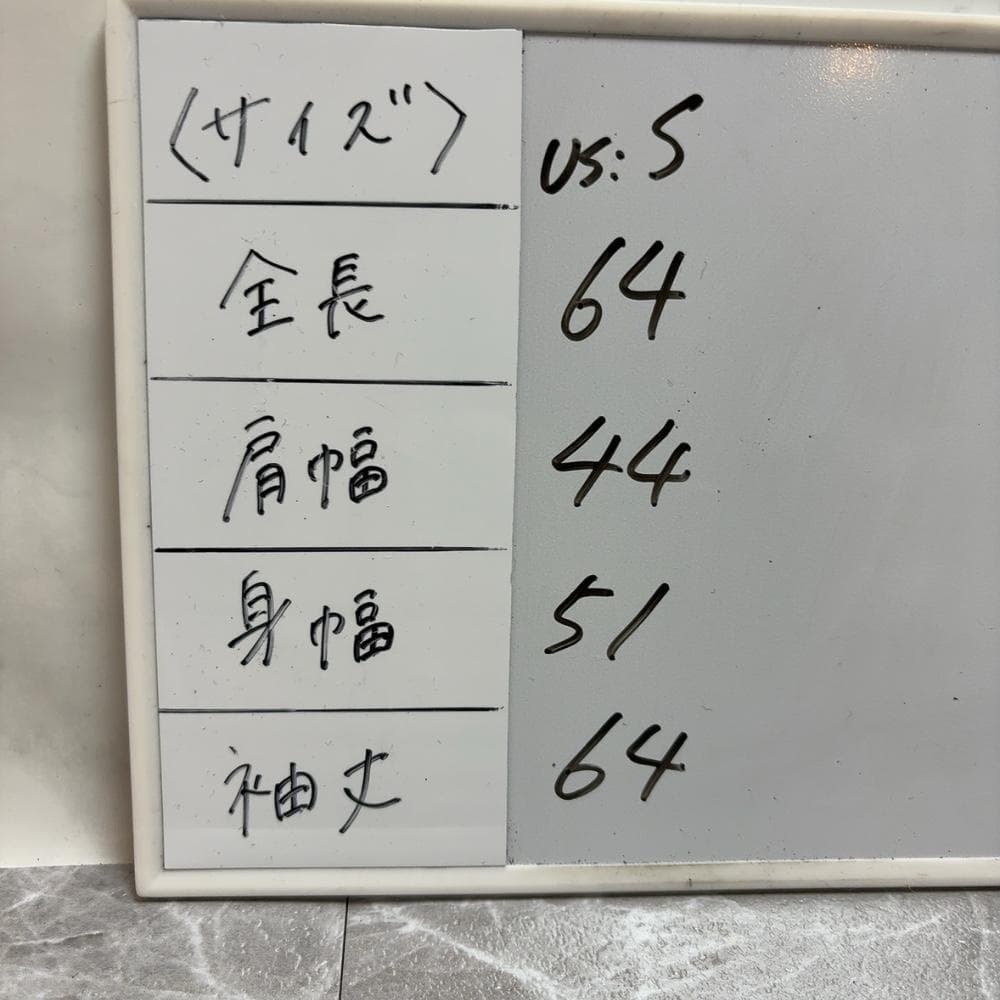 〈サイズ〉 US: S
全長 64
肩幅 44
身幅 51
袖丈 64